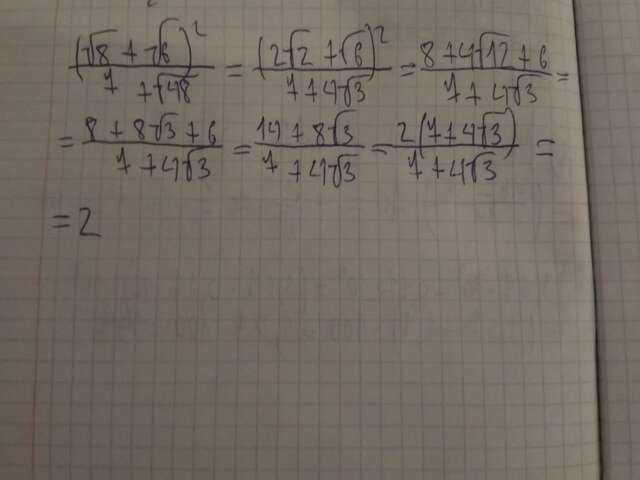 (√8 + √6)² / 7 + √48 = (2√2 + √6)² / 7 + 4√3 = 8 + 4√12 + 6 / 7 + 4√3 =
= 8 + 8√3 + 6 / 7 + 4√3 = 14 + 8√3 / 7 + 4√3 = 2(7 + 4√3) / 7 + 4√3 =
= 2